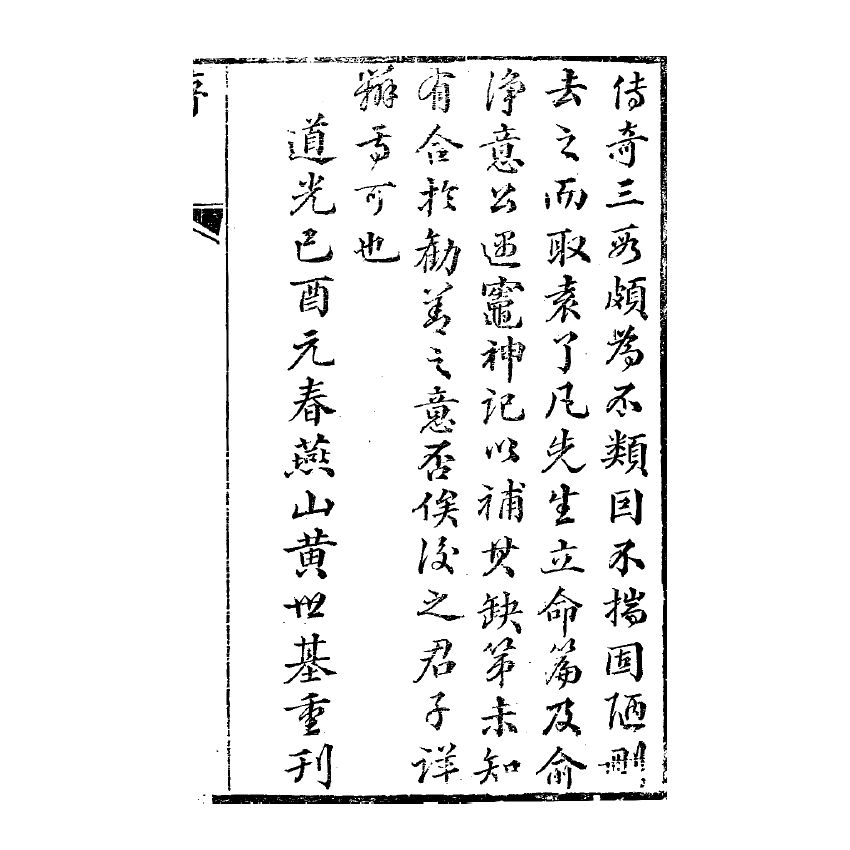 傳奇三段頗為不類因不揣固陋刪
去之而取袁了凡先生立命篇及俞
淨意公遇竈神記以補其缺第未知
有合於勸善之意否俟後之君子詳
辨焉可也
道光己酉元春燕山黃世基重刊
序